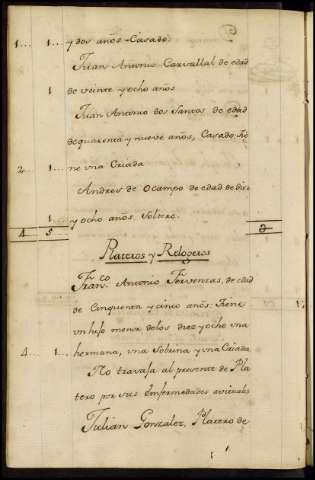 1... 1... y dos años - Casado.
Juan Antonio Carvallal de edad
1 de veinte y ocho años
Juan Antonio dos Santos de edad
de quarenta y nueve años, Casado, tie
2... 1... ne vna Criada
Andres de Ocampo de edad de diez
1 y ocho años. Soltero.
4 5
Plateros y Relogeros
Fran.co Antonio Ferventas, de edad
de Cinquenta y cinco años. tiene
vn hijo menor de los diez y ocho vna
4... 1... hermana, vna Sobrina y vna Criada
No travaja al presente de Pla
tero por sus Enfermedades
Julian Gonzalez, Platero de